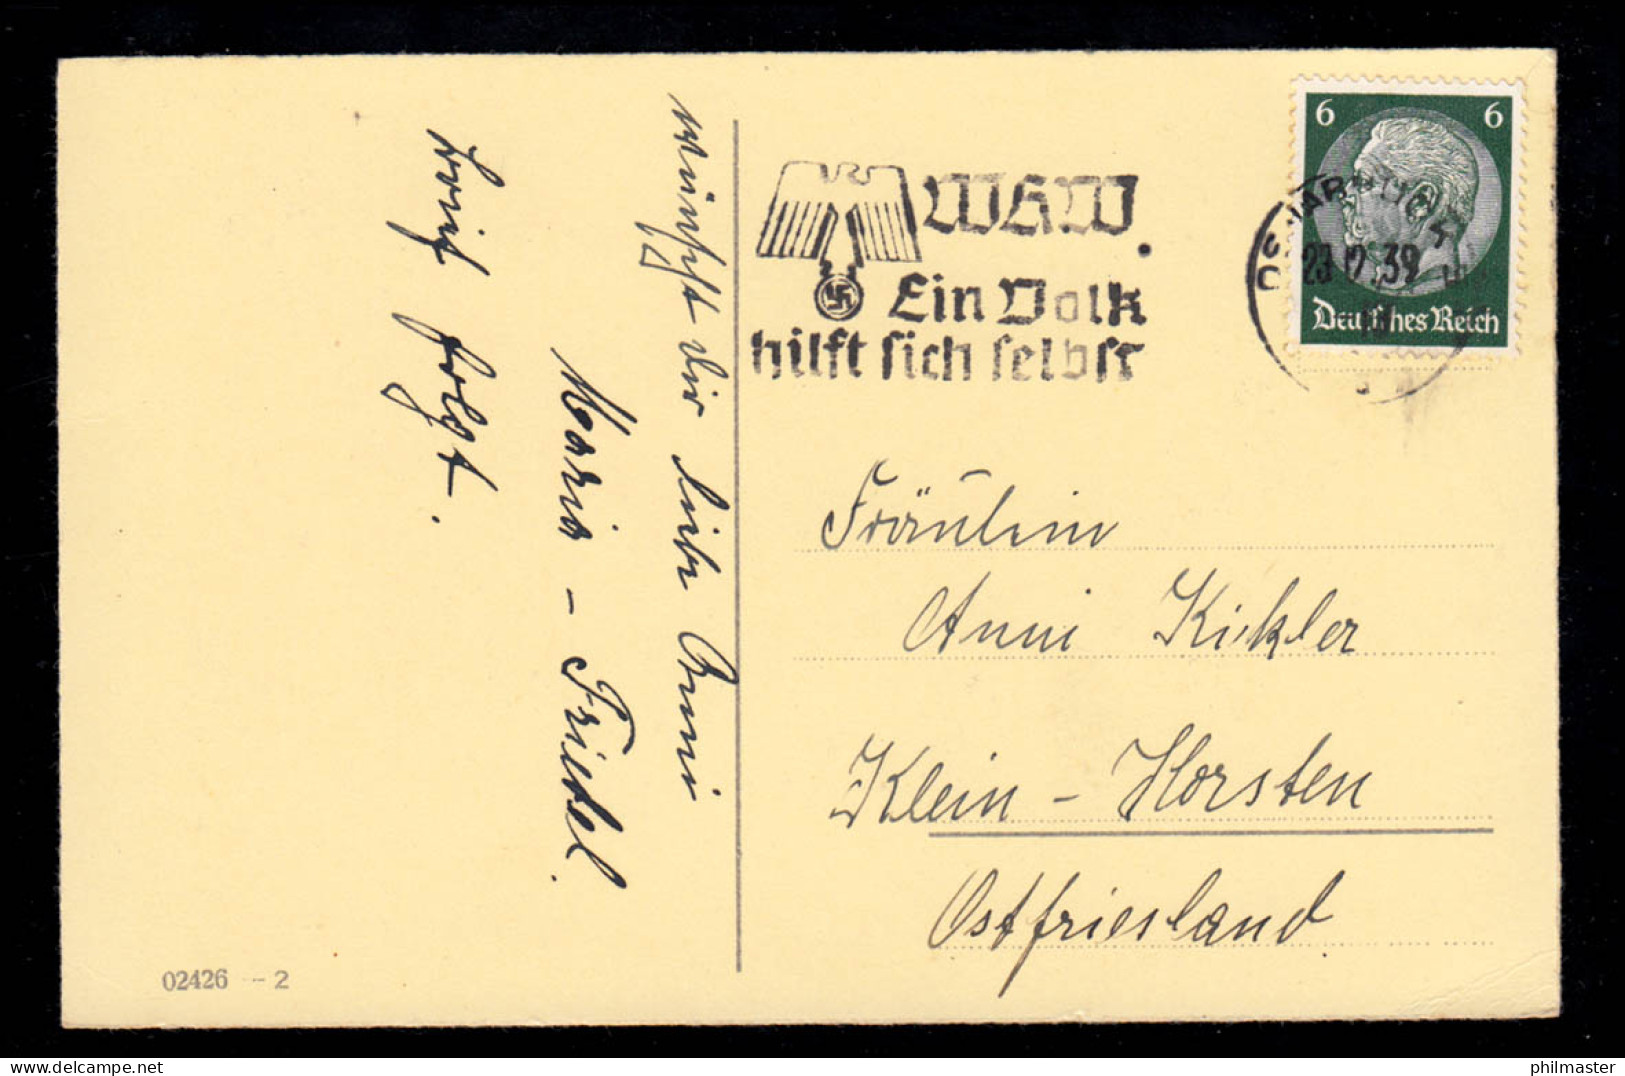 wünscht dir liebe Anni
Maria - Friedel.
Brief folgt.
02426 - 2
WHW.
Ein Volk
hilft sich selbst
6 6
23.12.39
Deutsches Reich
Fräulein
Anni Kickler
Klein - Horsten
Ostfriesland
philmaster